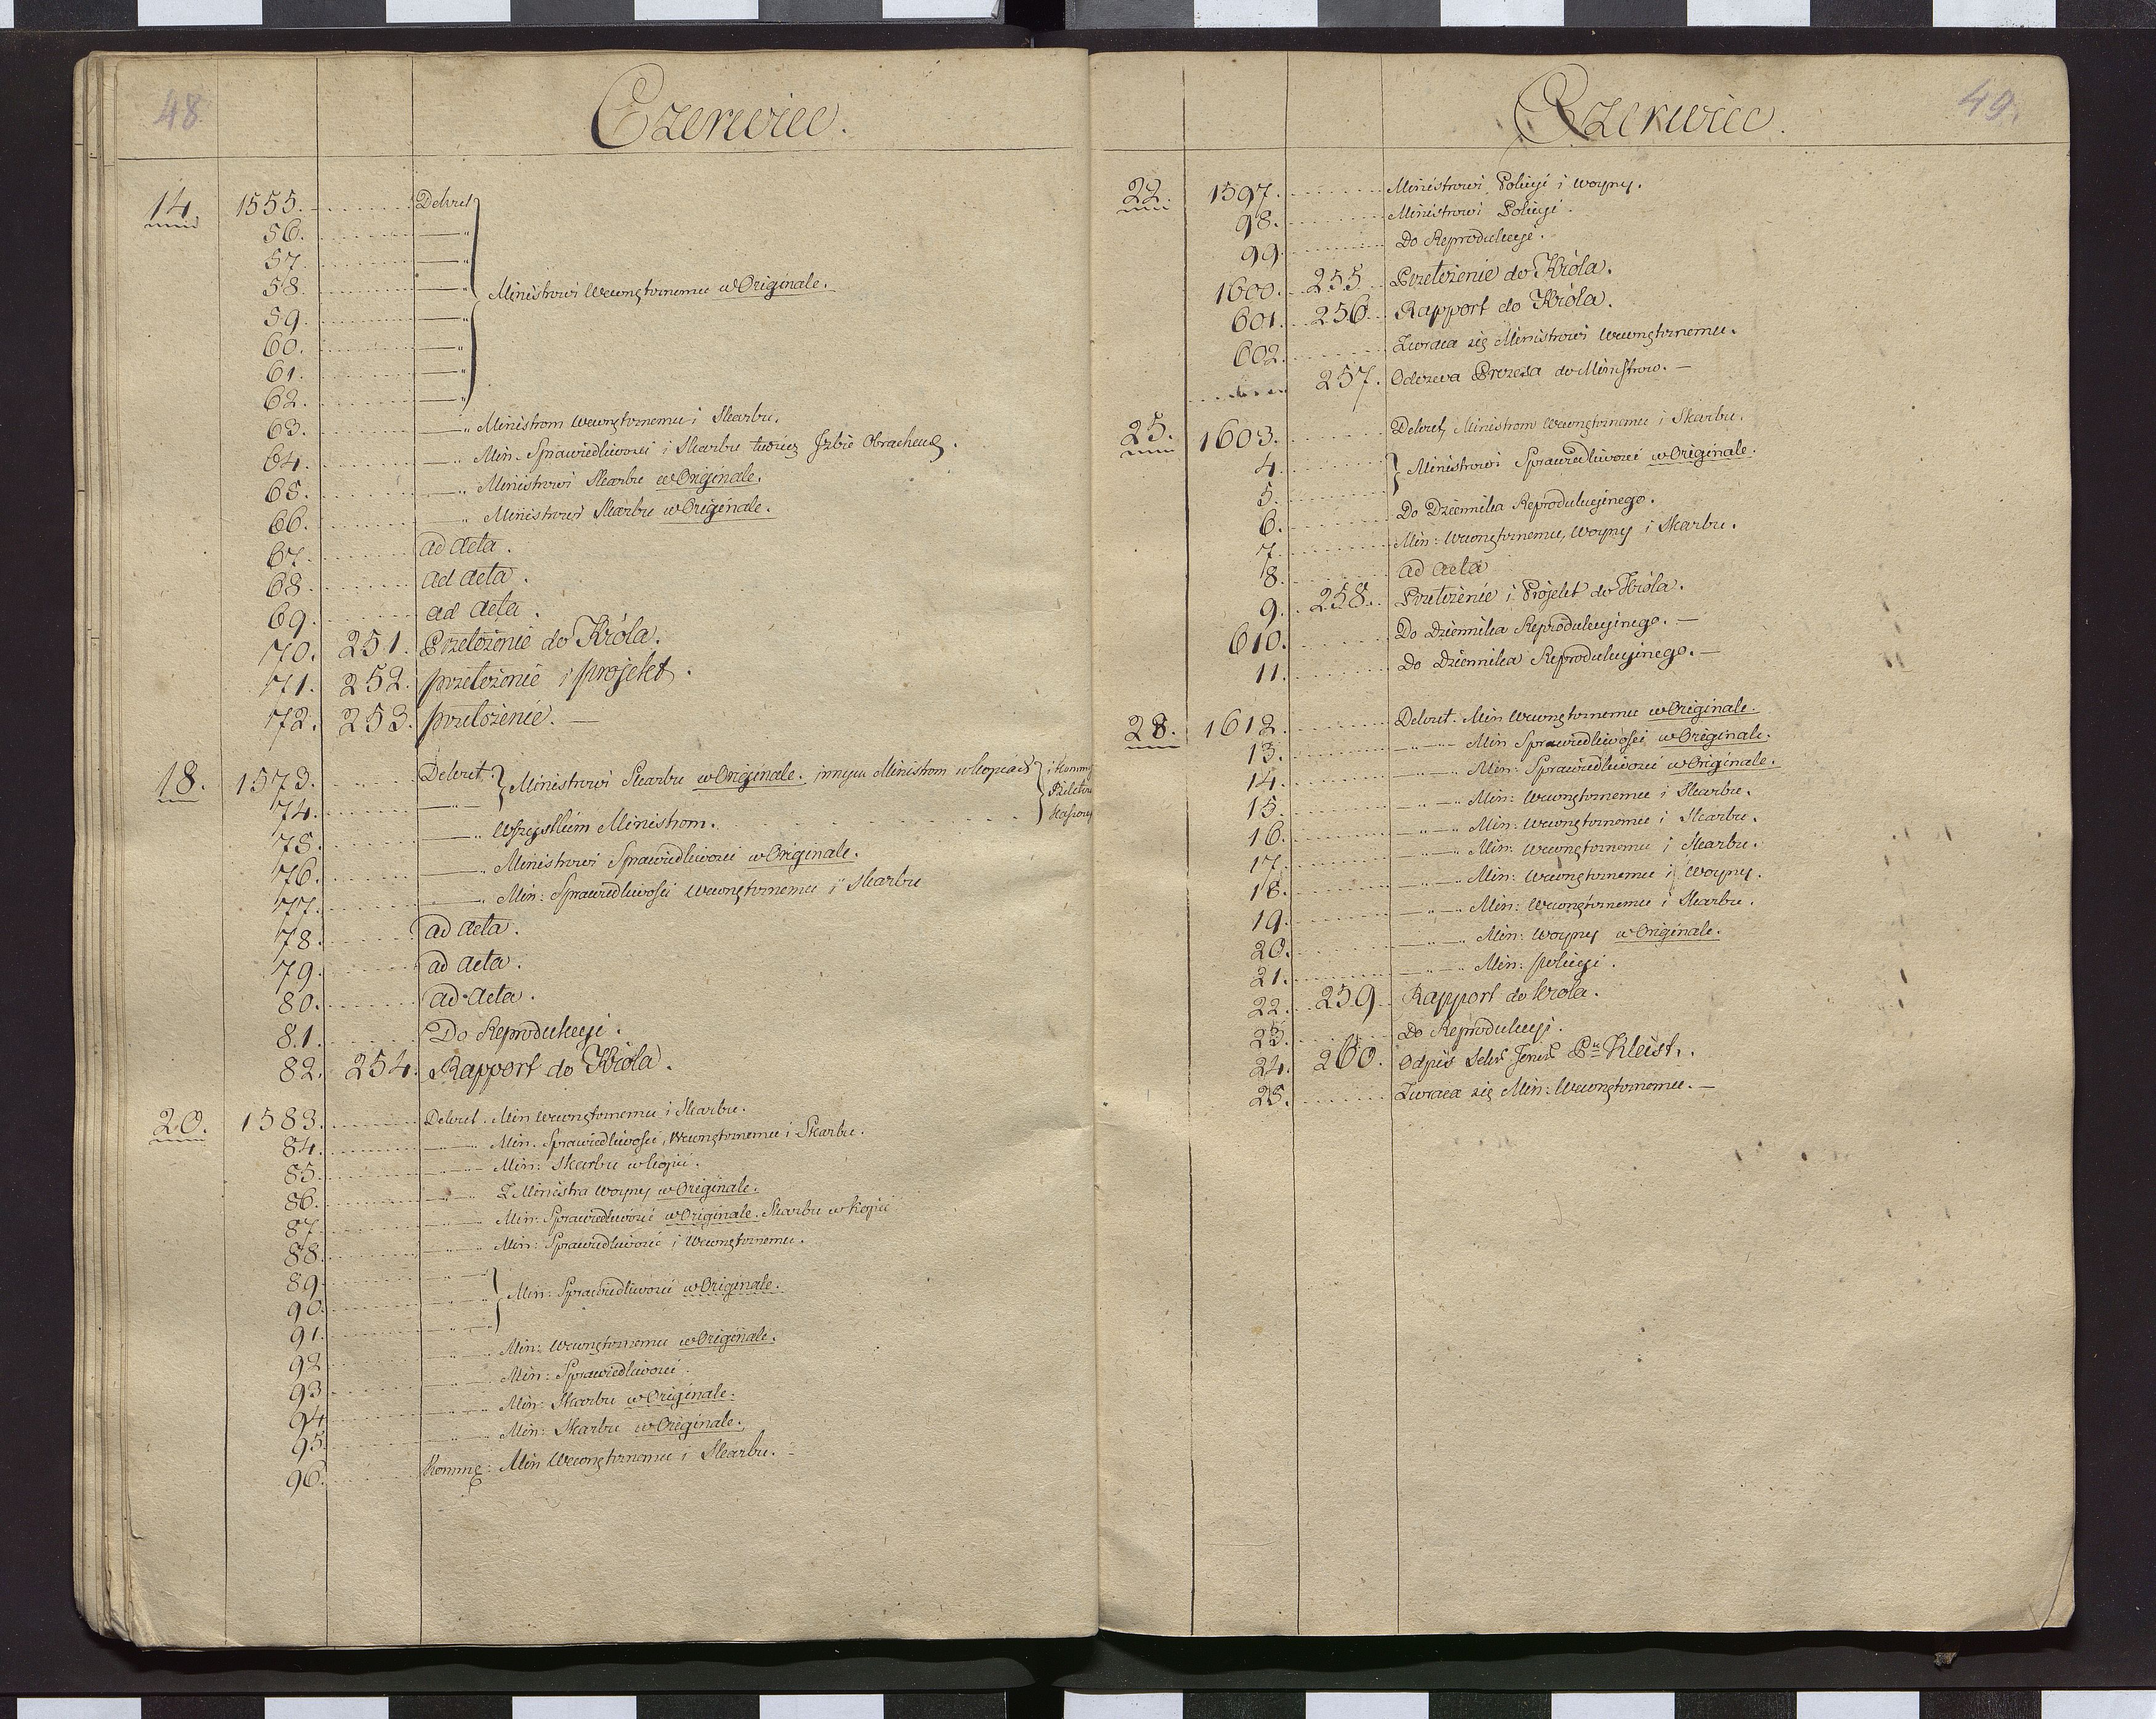 48
Czerwiec.
14. 1555. Dekret
56. — "
57. — "
58. — " Ministrowi Wewnętrznemu w Originale.
59. — "
60. — "
61. — "
62. — "
63. — " Ministrom Wewnętrznemu i Skarbu.
64. — " Min. Sprawiedliwości i Skarbu tudzież Izbie Obrachun:
65. — " Ministrowi Skarbu w Originale.
66. — " Ministrowi Skarbu w Originale.
67. ad Acta.
68. ad Acta.
69. ad Acta.
70. 251. Przełożenie do Króla.
71. 252. przełożenie i projekt.
72. 253. przełożenie. —
18. 1573. Dekret. Ministrowi Skarbu w Originale. innym Ministrom w kopiach i Kommis
74. — " Biletów
75. — " Wszystkim Ministrom. Kassowych
76. — " Ministrowi Sprawiedliwości w Originale.
77. — " Min: Sprawiedliwości Wewnętrznemu i Skarbu
78. ad Acta.
79. ad Acta.
80. ad Acta.
81. Do Reprodukcyi.
82. 254. Rapport do Króla.
20. 1583. Dekret. Min Wewnętrznemu i Skarbu.
84. — " — Min. Sprawiedliwości, Wewnętrznemu i Skarbu.
85. — " — Min: Skarbu w kopii.
86. — " — Z Ministra Woyny w Originale.
87. — " — Min: Sprawiedliwości w Originale. Skarbu w kopii
88. — " — Min: Sprawiedliwości i Wewnętrznemu.
89. — " —
90. — " — Min: Sprawiedliwości w Originale.
91. — " —
92. — " — Min: Wewnętrznemu w Originale.
93. — " — Min: Sprawiedliwości.
94. — " — Min: Skarbu w Originale.
95. — " — Min: Skarbu w Originale.
96. Kommę: Min Wewnętrznemu i Skarbu. —
49.
Czerwiec.
22. 1597. Ministrowi Policyi i Woyny.
98. Ministrowi Policyi.
99. Do Reprodukcyi.
1600. 255. Przełożenie do Króla.
601. 256. Rapport do Króla.
602. Zwraca się Ministrowi Wewnętrznemu.
257. Odezwa Prezesa do Ministrow. —
25. 1603. Dekret, Ministrom Wewnętrznemu i Skarbu.
4. Ministrowi Sprawiedliwości w Originale.
5.
6. Do Dziennika Reprodukcyinego.
7. Min: Wewnętrznemu, Woyny i Skarbu.
8. ad Acta
9. 258. Przełożenie i Projekt do Króla.
610. Do Dziennika Reprodukcyinego. —
11. Do Dziennika Reprodukcyinego. —
28. 1612. Dekret. Min Wewnętrznemu w Originale.
13. — " — Min Sprawiedliwości w Originale.
14. — " — Min: Sprawiedliwości w Originale.
15. — " — Min: Wewnętrznemu i Skarbu.
16. — " — Min: Wewnętrznemu i Skarbu.
17. — " — Min: Wewnętrznemu i Skarbu.
18. — " — Min: Wewnętrznemu i Woyny.
19. — " — Min: Wewnętrznemu i Skarbu.
20. — " — Min: Woyny w Originale.
21. — " — Min: policyi.
22. 259. Rapport do Króla.
23. Do Reprodukcyi.
24. 260. Odpis Sekr. Jener. Pu Kleist.
25. Zwraca się Min: Wewnętrznemu. —